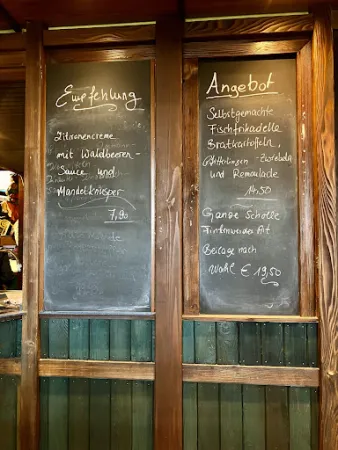 Empfehlung
Zitronencreme
mit Waldbeeren-
Sauce und
Mandelknusper
7,90
Angebot
Selbstgemachte
Fischfrikadelle
Bratkartoffeln
Zwiebeln
und Remoulade
14,50
Ganze Scholle
Art
Beilage nach
Wahl € 19,50